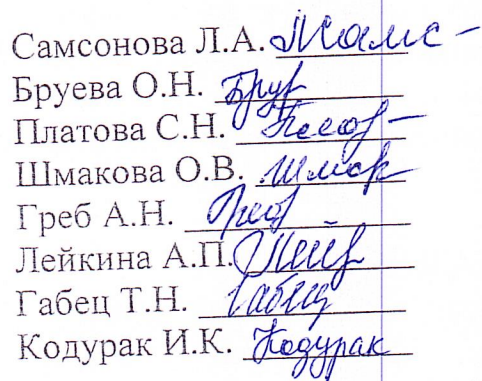 Самсонова Л.А.
Бруева О.Н. Бру
Платова С.Н.
Шмакова О.В. Шмак
Греб А.Н. Греб
Лейкина А.П. Лей
Габец Т.Н. Габец
Кодурак И.К. Кодурак